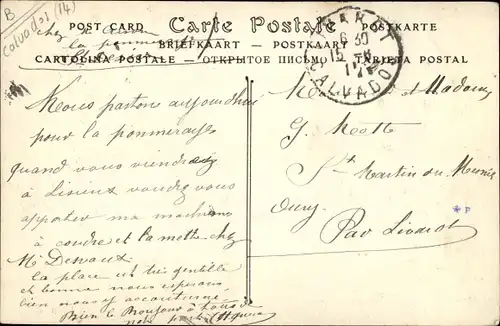 B
Calvados (14)
POST CARD Carte Postale POSTKARTE
BRIEFKAART — POSTKAART
CARTOLINA POSTALE — ОТКРЫТОЕ ПИСЬМО — TARJETA POSTAL
chez
la pommeraye
6 30
15
CALVADOS
Nous partons aujourd'hui
pour la pommeraye
quand vous viendrez
à Lisieux voudrez vous
apporter ma machine
à coudre et la mettre chez
Mr Devaux
la place est très gentille
et bonne nous espérons
bien nous y accoutumer
Bien le Bonjour à tous
et Madame
G. Motte
St Martin du Mesnil
Oury
Par Livarot
P